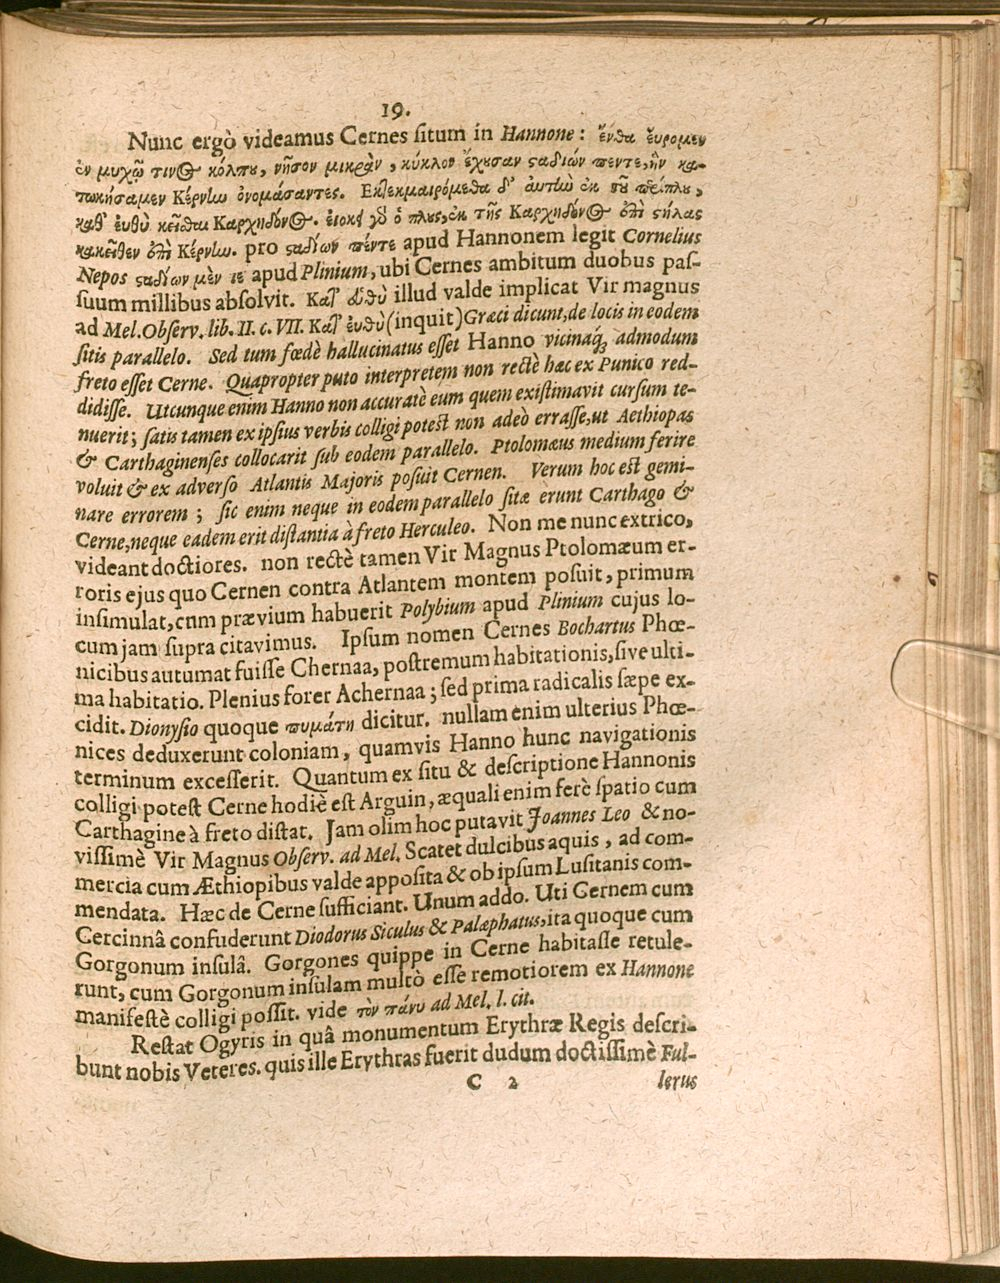 19.
Nunc ergò videamus Cernes ſitum in Hannone: ἔνθα ἕυρομεν
ἐν μυχῷ τιν@ κόλπȣ, νῆσον μικρὰν, κύκλον ἔχȣσαν ϛαδιών πεντε, ἣν κα-
τῳκήσαμεν Κέρνην ὀνομάσαντες. Ετεκμαιρόμεθα δ' ἀυτὴν ἐκ τȣ περίπλȣ,
καθ' ἐυθὺ κεῖσθαι Καρχηδόν@. ἐώκει γὸ ὁ πλȣς, ἐκ τῆς Καρχηδόν@ ἐπὶ ϛήλας
κακεῖθεν ἐπὶ Κέρνην. pro ϛαδίων πέντε apud Hannonem legit Cornelius
Nepos ϛαδίων μὲν ιε apud Plinium, ubi Cernes ambitum duobus paſ-
ſuum millibus abſolvit. Κατ' ἐυθὺ illud valde implicat Vir magnus
ad Mel. Obſerv. lib. II. c. VII. Κατ' ἐυθὺ (inquit) Græci dicunt, de locis in eodem
ſitis parallelo. Sed tum fœdè hallucinatus eſſet Hanno vicinaq́; admodum
freto eſſet Cerne. Quapropter puto interpretem non rectè hæc ex Punico red-
didiſſe. Utcunque enim Hanno non accuratè eum quem exiſtimavit curſum te-
nuerit; ſatis tamen ex ipſius verbis colligi poteſt non adeò erraſſe, ut Aethiopas
& Carthaginenſes collocarit ſub eodem parallelo. Ptolomæus medium ferire
voluit & ex adverſo Atlantis Majoris poſuit Cernen. Verum hoc eſt gemi-
nare errorem; ſic enim neque in eodem parallelo ſitæ erunt Carthago &
Cerne, neque eadem erit diſtantia à freto Herculeo. Non me nunc extrico,
videant doctiores. non rectè tamen Vir Magnus Ptolomæum er-
roris ejus quo Cernen contra Atlantem montem poſuit, primum
inſimulat, cum prævium habuerit Polybium apud Plinium cujus lo-
cum jam ſupra citavimus. Ipſum nomen Cernes Bochartus Phœ-
nicibus autumat fuiſſe Chernaa, poſtremum habitationis, ſive ulti-
ma habitatio. Plenius foret Achernaa; ſed prima radicalis ſæpe ex-
cidit. Dionyſio quoque πυμάτη dicitur. nullam enim ulterius Phœ-
nices deduxerunt coloniam, quamvis Hanno hunc navigationis
terminum exceſſerit. Quantum ex ſitu & deſcriptione Hannonis
colligi poteſt Cerne hodiè eſt Arguin, æquali enim ferè ſpatio cum
Carthagine à freto diſtat. Jam olim hoc putavit Joannes Leo & no-
viſſimè Vir Magnus Obſerv. ad Mel. Scatet dulcibus aquis, ad com-
mercia cum Æthiopibus valde appoſita & ob ipſum Luſitanis com-
mendata. Hæc de Cerne ſufficiant. Unum addo. Uti Cernem cum
Cercinnâ confuderunt Diodorus Siculus & Palæphatus, ita quoque cum
Gorgonum inſulâ. Gorgones quippe in Cerne habitaſſe retule-
runt, cum Gorgonum inſulam multò eſſe remotiorem ex Hannone
manifeſtè colligi poſſit. vide τὸν πάνυ ad Mel. l. cit.
Reſtat Ogyris in quâ monumentum Erythræ Regis deſcri-
bunt nobis Veteres. quis ille Erythras fuerit dudum doctiſſimè Ful-
C 2 lerus